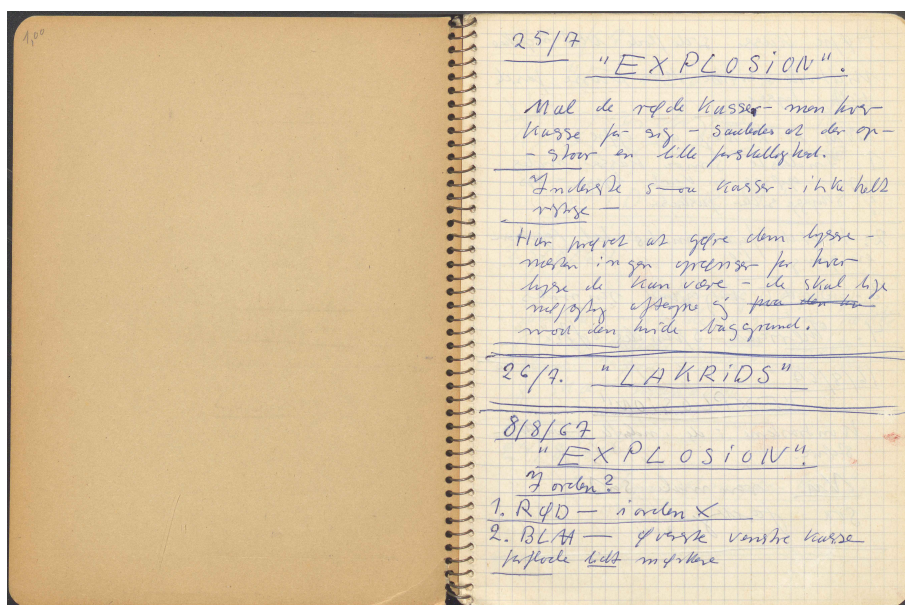 1,00
25/7
"EXPLOSiON".
Mal de røde Kasser - men hver
Kasse for sig - Saaledes at der op-
- staar en lille forskellighed.
Inderste smaa Kasser - ikke helt
rigtige -
Har prøvet at gøre dem lysse -
næsten ingen grænser for hvor
lysse de kan være - de skal lige
nøjagtig aftegne sig paa den
mod den hvide baggrund.
26/7. "LAKRiDS"
8/8/67
"EXPLOSiON".
I orden?
1. RØD - i orden X
2. BLAA - Øverste venstre Kasse
forflade lidt mørkere